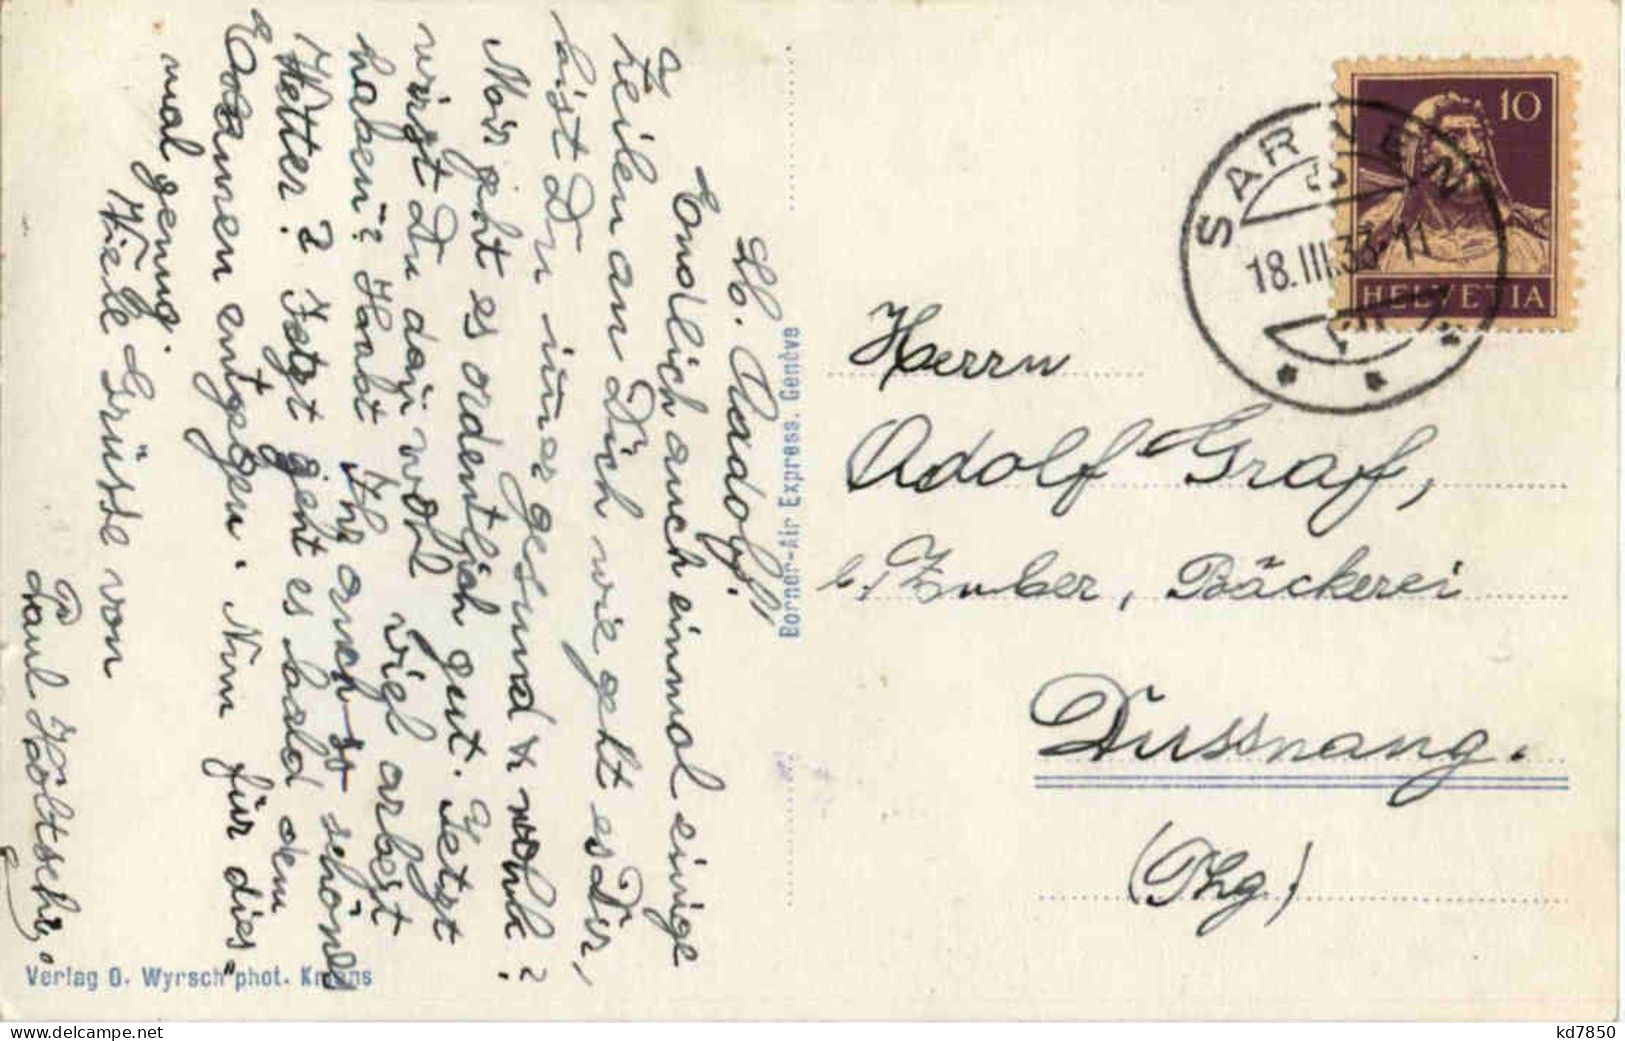 Lb. Aadolf!
Endlich auch einmal einige
Zeilen an Dich wie geht es Dir,
bist Du imer gesund & wohl?
Mir geht es ordentlich gut. Jetzt
wirst Du daij wohl viel arbeit
haben? Habt Ihr auch so schöne
Wetter? Jetzt geht es bald dem
Exsamen entgegen. Nim für dies
mal genug.
Viele Grüsse von
Paul
Borner-Air Express. Genève
Verlag O. Wyrsch phot. Kerns
10
HELVETIA
SARNEN
18.III.33-11
Herrn
Adolf Graf,
b. Zuber, Bäckerei
Dussnang.
(Thg.)
kd7850
delcampe.net